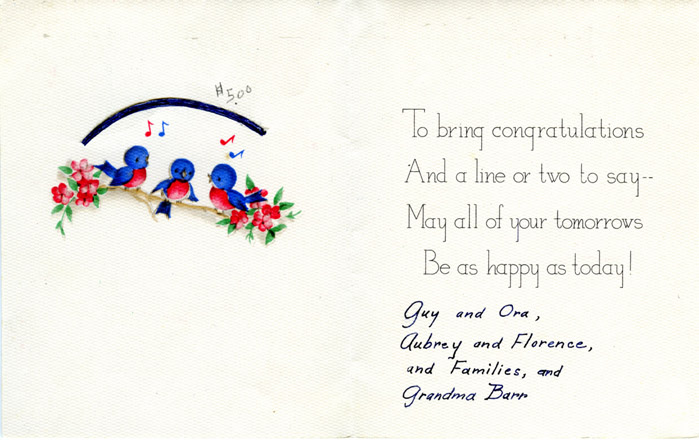 $5.00
To bring congratulations
And a line or two to say--
May all of your tomorrows
Be as happy as today!
Guy and Ora,
Aubrey and Florence,
and Families, and
Grandma Barr